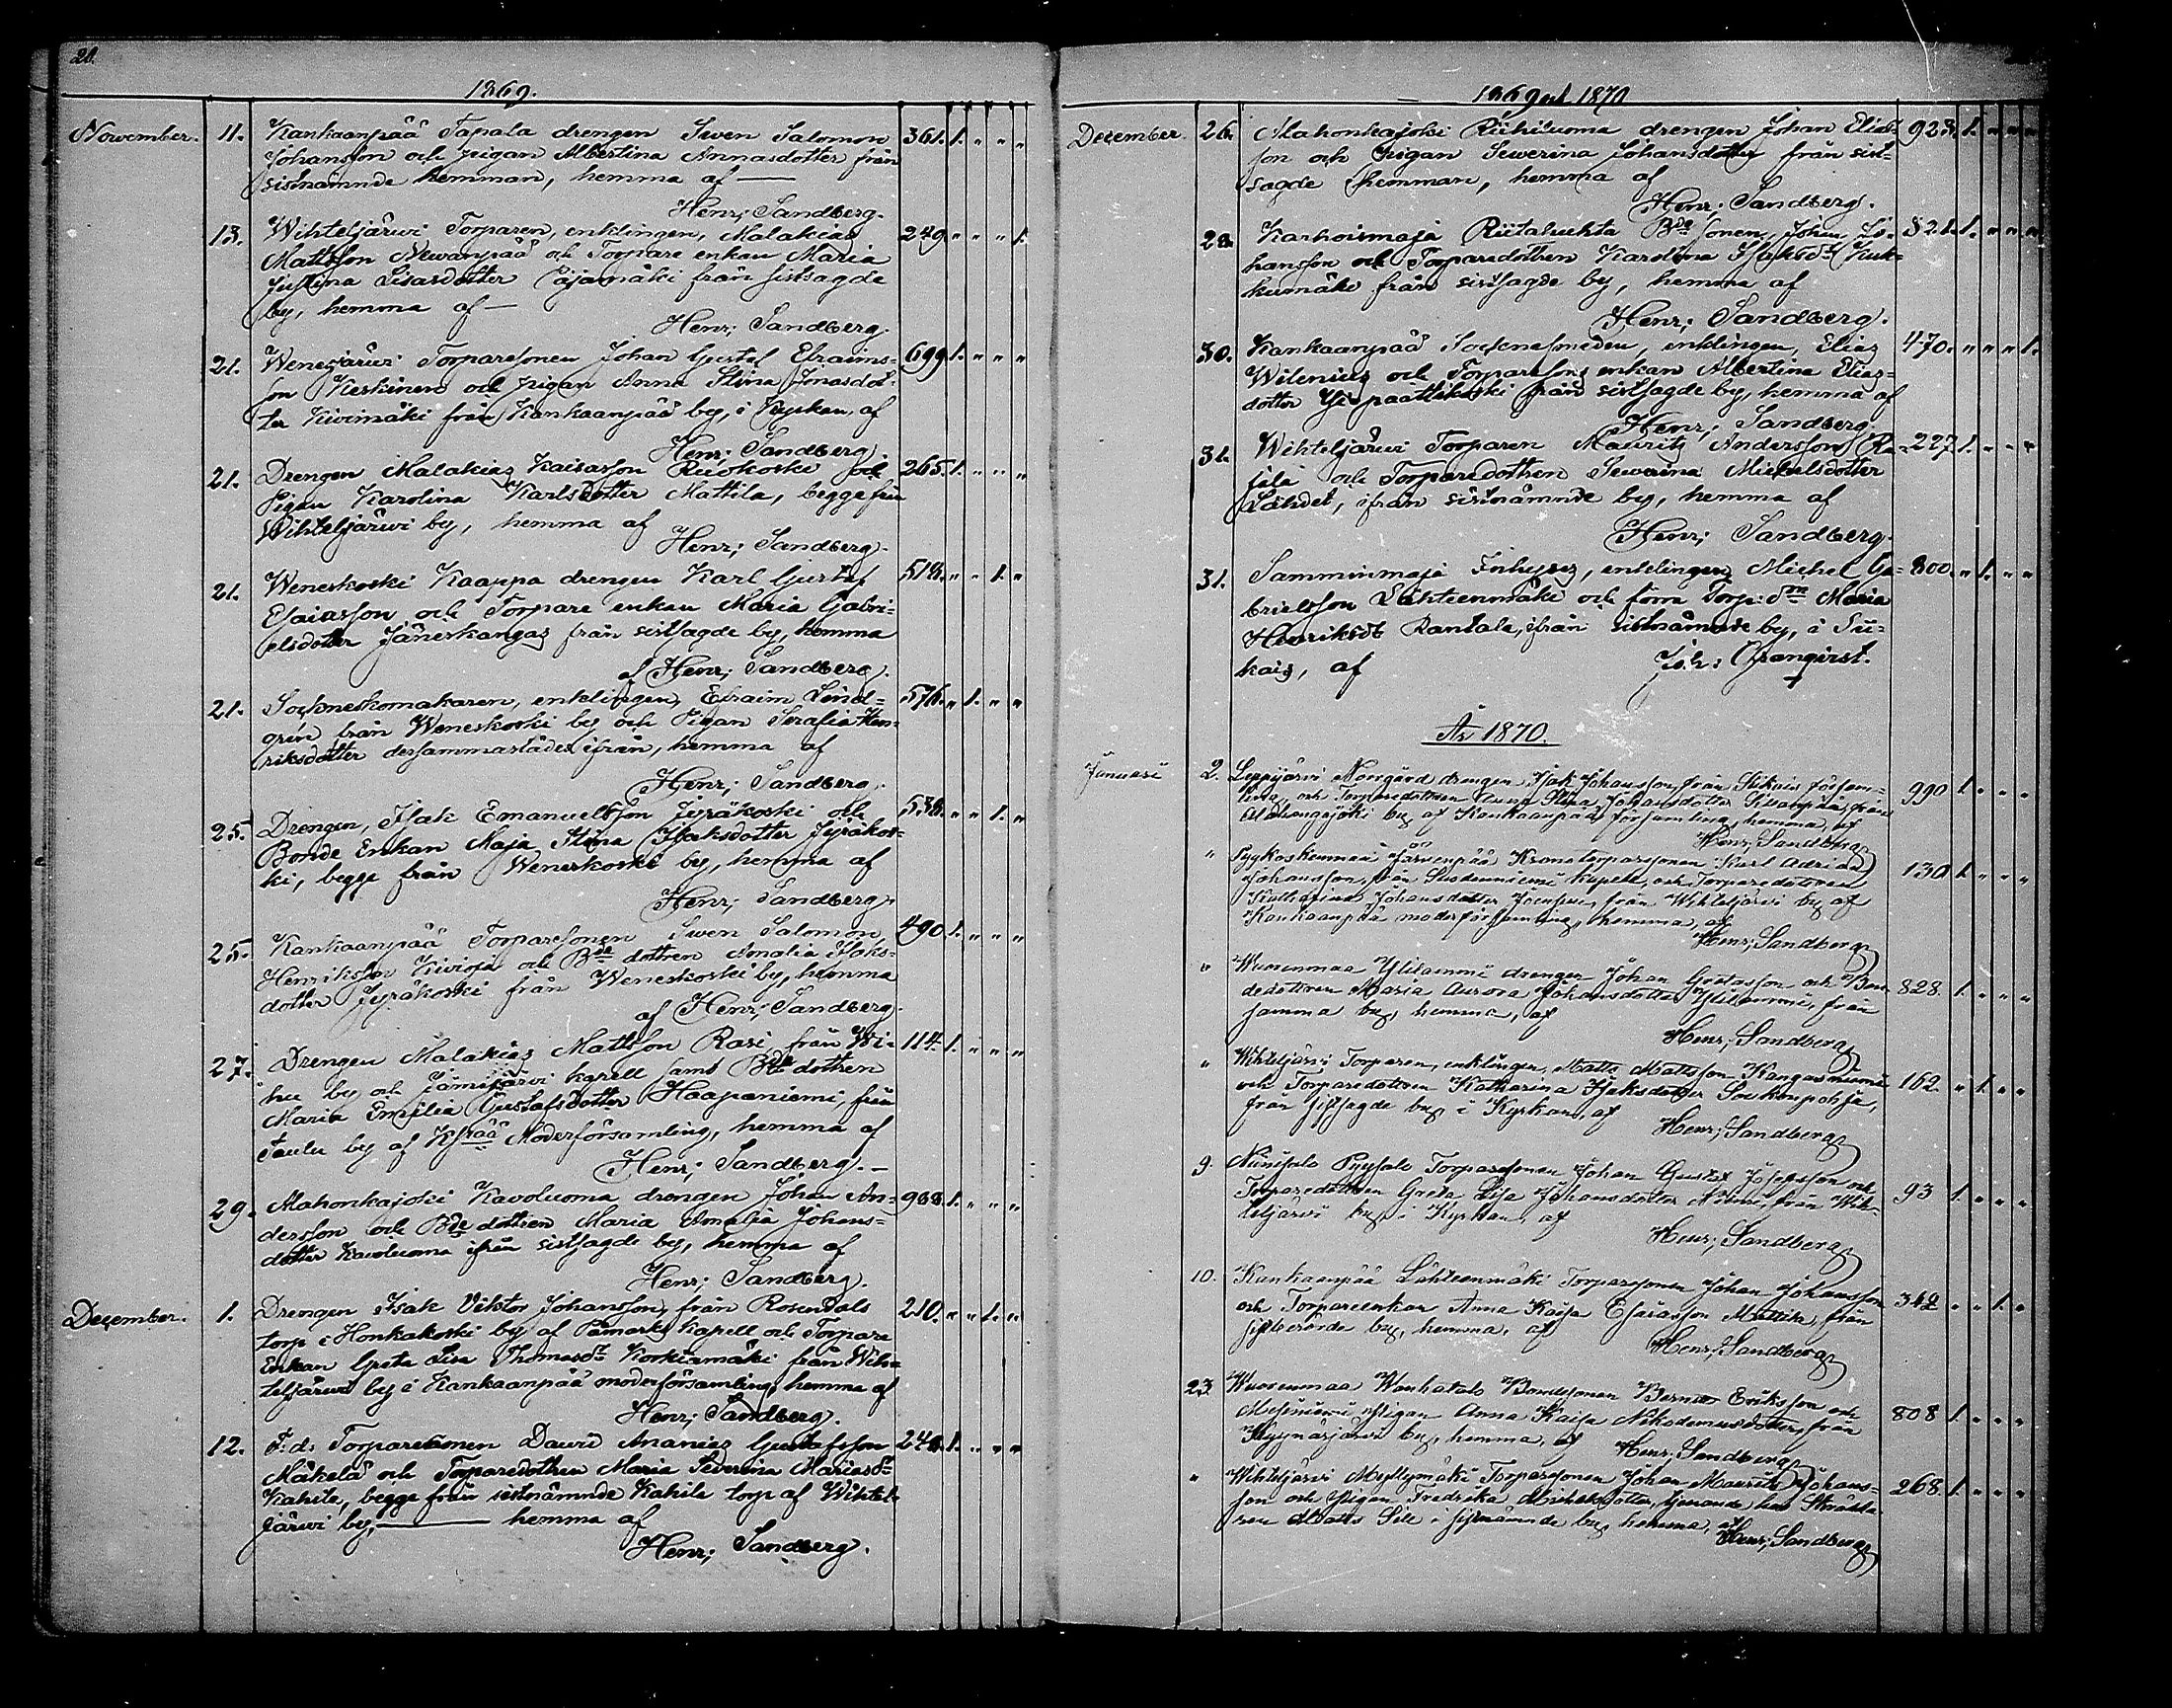 26.
1869.
November. 11. Kankaanpää Tapala drengen Swen Salomon 361. 1. " " "
Johansson och pigan Albertina Annasdotter från
sistnämnde hemman, hemma af —
Henr; Sandberg.
13. Wihteljärwi Torparen, enklingen, Malakias 249. " " " 1.
Mattsson Newanpää och Torpare enkan Maria
Justina Lisasdotter Pajamäki från sistsagde
by, hemma af —
Henr; Sandberg.
21. Wenesjärwi Torparesonen Johan Gustaf Efraims- 699. 1. " " "
son Keskinen och pigan Anna Stina Jonasdot-
ter Kivimäki från Kankaanpää by, i Kyrkan, af
Henr; Sandberg.
21. Drengen Malakias Kaisasson Ruokoski och 265. 1. " " "
Pigan Karolina Karlsdotter Mattila, begge från
Wihteljärwi by, hemma af
Henr; Sandberg.
21. Weneskoski Kaappa drengen Karl Gustaf 518. " " 1. "
Esaiasson och Torpare enkan Maria Gabri-
elsdotter Jäneskangas från sistsagde by, hemma
af Henr; Sandberg.
21. Sockneskomakaren, enklingen, Efraim Lind- 576. " 1. " "
grén från Weneskoski by och Pigan Serafia Hen-
riksdotter dersammastädes ifrån, hemma af
Henr; Sandberg.
25. Drengen, Isak Emanuelsson Jyräkoski och 538. " " 1. "
Bonde Enkan Maja Stina Isaksdotter Jyräkos-
ki, begge från Weneskoski by, hemma af
Henr; Sandberg.
25. Kankaanpää Torparesonen Swen Salomon 490. 1. " " "
Henriksson Kivioja och Bde dottren Amalia Isaks-
dotter Jyräkoski från Weneskoski by, hemma
af Henr; Sandberg.
27. Drengen Malakias Mattsson Rasi, från Wi- 114. 1. " " "
hu by och Jämijärvi kapell samt Bde dottren
Maria Emilia Gustafsdotter Haapaniemi, från
by af Kpää Moderförsamling, hemma af
Henr; Sandberg. —
29. Mahonkajoki Kavoluoma drengen Johan An- 968. 1. " " "
dersson och Bde dottren Maria Amalia Johans-
dotter Kavoluoma ifrån sistsagde by, hemma af
Henr; Sandberg.
December. 1. Drengen Isak Viktor Johansson, från Rosendals 210. " " 1. "
torp i Honkakoski by af Påmarks Kapell och Torpare
Enkan Greta Lisa Thomasdr Korkiamäki från Wih-
teljärwi by i Kankaanpää moderförsamling, hemma af
Henr; Sandberg.
12. F: d: Torparesonen David Ananias Gustafsson 248. 1. " " "
Mäkelä och Torparedottren Maria Severina Mariasdr
Kahila, begge från sistnämnde Kahila torp af Wihtel-
järwi by, — hemma af
Henr; Sandberg.
1869 och 1870
December. 26. Mahonkajoki Riihiluoma drengen Johan Elias- 923. 1. " " "
son och Pigan Sewerina Johansdotter från sist-
sagde hemman, hemma af
Henr; Sandberg.
28. Karhoismaja Riitahuhta Bde Sonen, Johan Jo- 821. 1. " " "
hansson och Torparedottren Karolina Isaksdr Kuk-
kumäki från sistsagde by, hemma af
Henr; Sandberg.
30. Kankaanpää Socknesmeden, enklingen, Elias 470. " " " 1.
Wilenius och Torparesons enkan Albertina Elias-
dotter från sistsagde by, hemma af
Henr; Sandberg.
31. Wihteljärwi Torparen Mauritz Andersson Ra- 227 1. " " "
jala och Torparedottren Sewerina Michelsdotter
Lähdet, ifrån sistnämnde by, hemma af
Henr; Sandberg.
31. Samminmaja Inhyses, enklingen, Michel Ga- 800. " 1. " "
brielsson Lähteenmäki och förra Torp: dn Maria
Henriksdr Rantala, ifrån sistnämnde by, i Sii-
kais, af Joh: Granqvist.
År 1870.
Januari 2. Leppijärvi Norrgård drengen Isak Johansson, från Siikais försam- 990 1. " " "
ling, och Torparedottren Anna Stina Johansdotter från
by af Kankaanpää församling, hemma, af
Henr; Sandberg
" Järvenpää Kronotorparesonen Karl Adrian 130 1. " " "
Johansson, från Suodenniemi Kapell, och Torparedottren
Johansdotter från Wihteljärvi by af
Kankaanpää moderförsamling, hemma, af
Henr; Sandberg
" Wuorenmaa Ylilammi drengen Johan Gretasson och Bon- 828. 1. " " "
dedottren Maria Aurora Johansdotter Ylilammi, från
samma by, hemma, af
Henr; Sandberg
" Wihteljärvi Torparen, enklingen, Matts Mattsson Kangasniemi 162. " 1. " "
och Torparedottren Katharina Isaksdotter
från sistsagde by, i Kyrkan, af
Henr; Sandberg
9. Niinisalo Pyysalo Torparesonen Johan Gustaf Josefsson och 93 1. " " "
Torparedottren Greta Lisa Johansdotter från Wih-
teljärvi by, i Kyrkan, af
Henr; Sandberg
10. Kankaanpää Lähteenmäki Torparesonen Johan Johansson 342 " " 1. "
och Torpareenkan Anna Kaisa Esaiasson Mattila, från
by, hemma, af
Henr; Sandberg
23. Wuorenmaa Wanhatalo Bondesonen Eriksson och 808 1. " " "
Pigan Anna Kaisa Nikodemusdotter, från
by, hemma, af Henr; Sandberg
" Wihteljärvi Myllymäki Torparesonen Johan Mauritz Johans- 268. 1. " " "
son och Pigan Fredrika Michelsdotter, tjenande hos Skrädda-
ren Matts i sistnämnde by, hemma, af
Henr; Sandberg